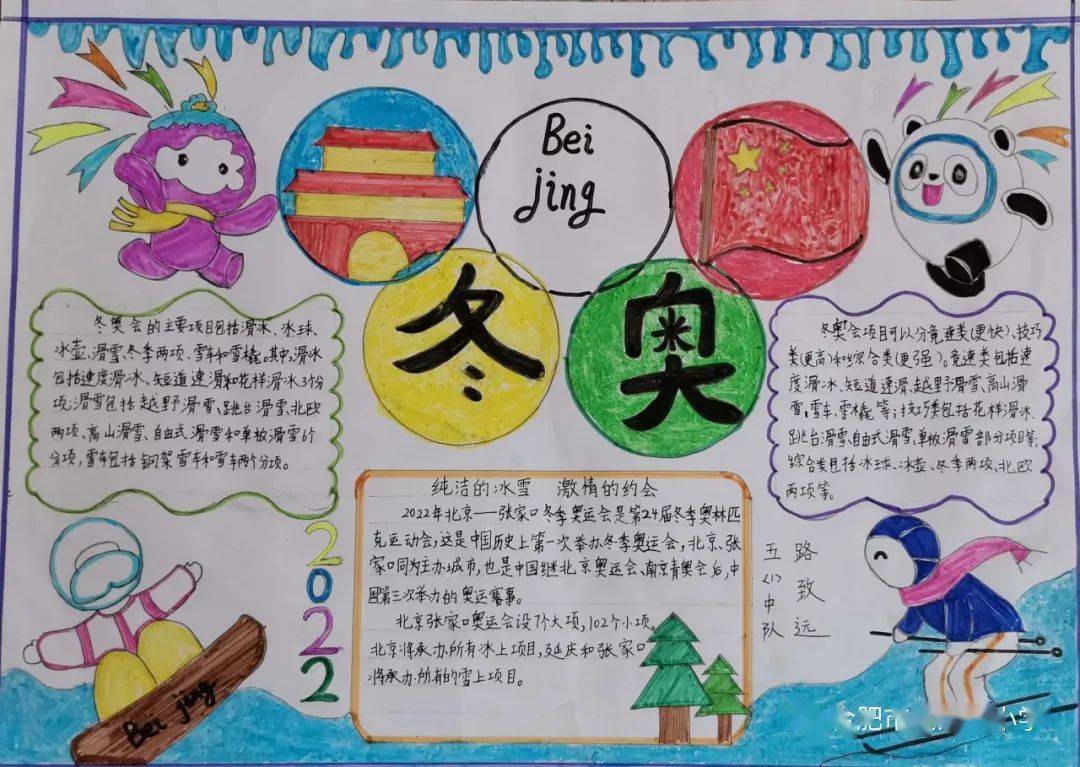 Bei
jing
冬
奥
冬奥会的主要项目包括滑冰、冰球、
冰壶、滑雪、冬季两项、雪车和雪橇。其中,滑冰
包括速度滑冰、短道速滑和花样滑冰3个分
项;滑雪包括越野滑雪、跳台滑雪、北欧
两项、高山滑雪、自由式滑雪和单板滑雪6个
分项,雪车包括钢架雪车和雪车两个分项。
冬奥会项目可以分竞速类(更快)、技巧
类(更高)和综合类(更强)。竞速类包括速
度滑冰、短道速滑、越野滑雪、高山滑
雪、雪车、雪橇等;技巧类包括花样滑冰、
跳台滑雪、自由式滑雪、单板滑雪部分项目等,
综合类包括冰球、冰壶、冬季两项、北欧
两项等。
纯洁的冰雪 激情的约会
2022年北京——张家口冬季奥运会是第24届冬季奥林匹
克运动会,这是中国历史上第一次举办冬季奥运会,北京、张
家口同为主办城市,也是中国继北京奥运会、南京青奥会后,中
国第三次举办的奥运赛事。
北京张家口奥运会设7个大项,102个小项。
北京将承办所有冰上项目,延庆和张家口
将承办所有的雪上项目。
2022
五〈1〉中队
路致远
Bei jing
肥市